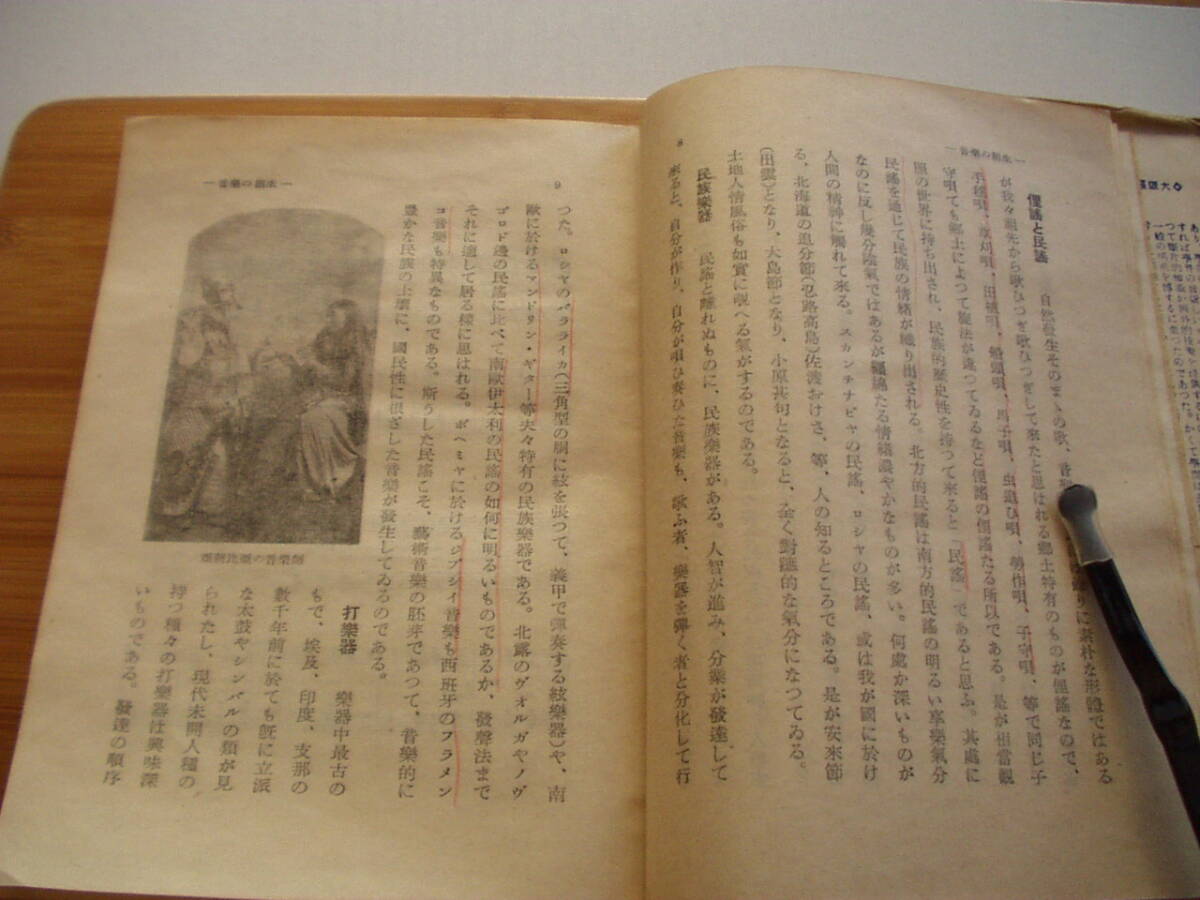 8
― 音樂の誕生 ―
俚謠と民謠　自然發生そのまゝの歌、音
りに素朴な形體ではある
が我々祖先から歌ひつぎ歌ひつぎして來たと思はれる鄕土特有のものが俚謠なので、
手毬唄、草刈唄、田植唄、船頭唄、馬子唄、虫追ひ唄、勞作唄、子守唄、等で同じ子
守唄でも鄕土によつて旋法が違つてゐるなど俚謠の俚謠たる所以である。是が出當觀
照の世界に持ち出され、民族的歷史性を持つて來ると「民謠」であると思ふ。其處に
民謠を通じて民族の情緒が織り出される。北方的民謠は南方的民謠の明るい享樂氣分
なのに反し幾分陰氣ではあるが纒綿たる情緒濃やかなものが多い。何處か深いものが
人間の精神に觸れて來る。スカンヂナビヤの民謠、ロシヤの民謠、或は我が國に於け
る、北海道の追分節(忍路高島)佐渡おけさ、等、人の知るところである。是が安來節
(出雲)となり、大島節となり、小原甚句となると、全く對蹠的な氣分になつてゐる。
土地人情風俗も如實に覗へる氣がするのである。
民族樂器　民謠と離れぬものに、民族樂器がある。人智が進み、分業が發達して
來ると、自分が作り、自分が唄ひ奏ひた音樂も、歌ふ者、樂器を彈く者と分化して行
9
― 音樂の誕生 ―
つた。ロシヤのバラライカ(三角型の胴に絃を張つて、義甲で彈奏する絃樂器)や、南
歐に於けるマンドリン・ギター等夫々特有の民族樂器である。北露のヴオルガやノヴ
ゴロド邊の民謠に比べて南歐伊太利の民謠の如何に明るいものであるか、發聲法まで
それに適して居る樣に思はれる。ボヘミヤに於けるジプシイ音樂も西班牙のフラメン
コ音樂も特異なものである。斯うした民謠こそ、藝術音樂の胚芽であつて、音樂的に
豊かな民族の土壤に、國民性に根ざした音樂が發生してゐるのである。
打樂器　樂器中最古の
もで、埃及、印度、支那の
數千年前に於ても旣に立派
な太鼓やシンバルの類が見
られたし、現代未開人種の
持つ種々の打樂器は興味深
いものである。發達の順序
亞剌比亞の音樂師